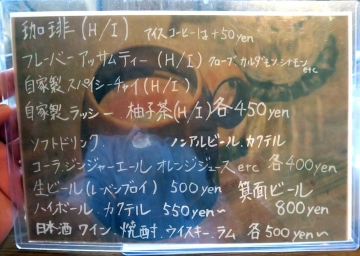 珈琲 (H/I) アイスコーヒーは+50yen
フレーバーアッサムティー (H/I) クローブ カルダモン シナモン etc
自家製スパイシーチャイ (H/I)
自家製ラッシー. 柚子茶 (H/I) 各450yen
ソフトドリンク. ノンアルビール. カクテル
コーラ. ジンジャーエール オレンジジュース etc 各400yen
生ビール (レーベンブロイ) 500yen 箕面ビール
ハイボール. カクテル 550yen〜 800yen
日本酒 ワイン. 焼酎. ウイスキー. ラム 各500yen〜